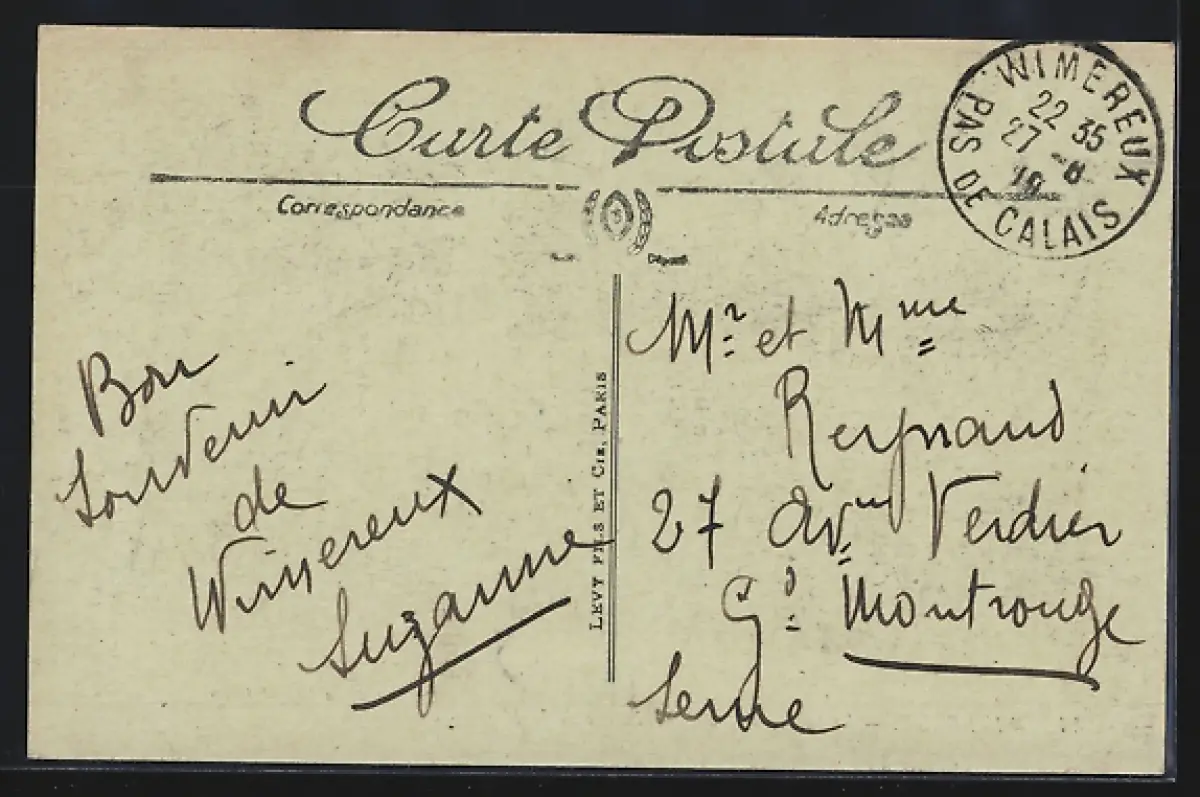 Carte Postale
Correspondance
Adresse
WIMEREUX
22 35
27 -8
PAS DE CALAIS
Bon
Souvenir
de
Wimereux
Suzanne
LEVY FILS ET CIE, PARIS
Mr et Mme
Reynaud
27 Avue Verdier
Gd Montrouge
Seine